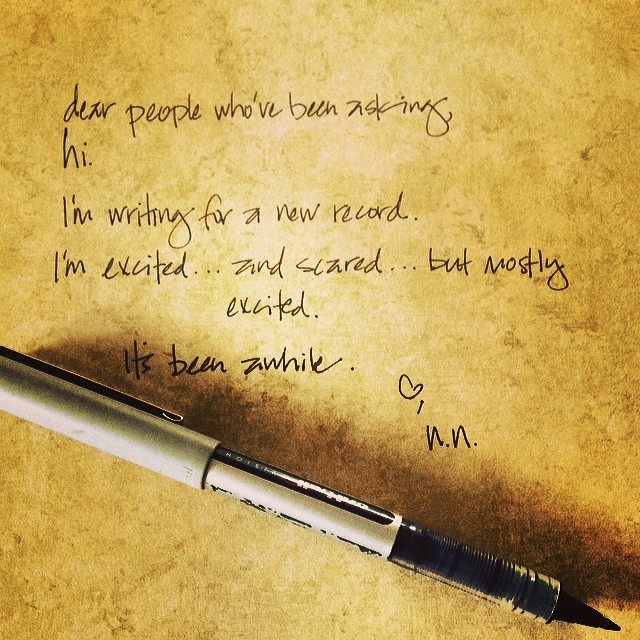 dear people who've been asking,
hi.
I'm writing for a new record.
I'm excited... and scared... but mostly
excited.
It's been awhile.
♡,
n.n.